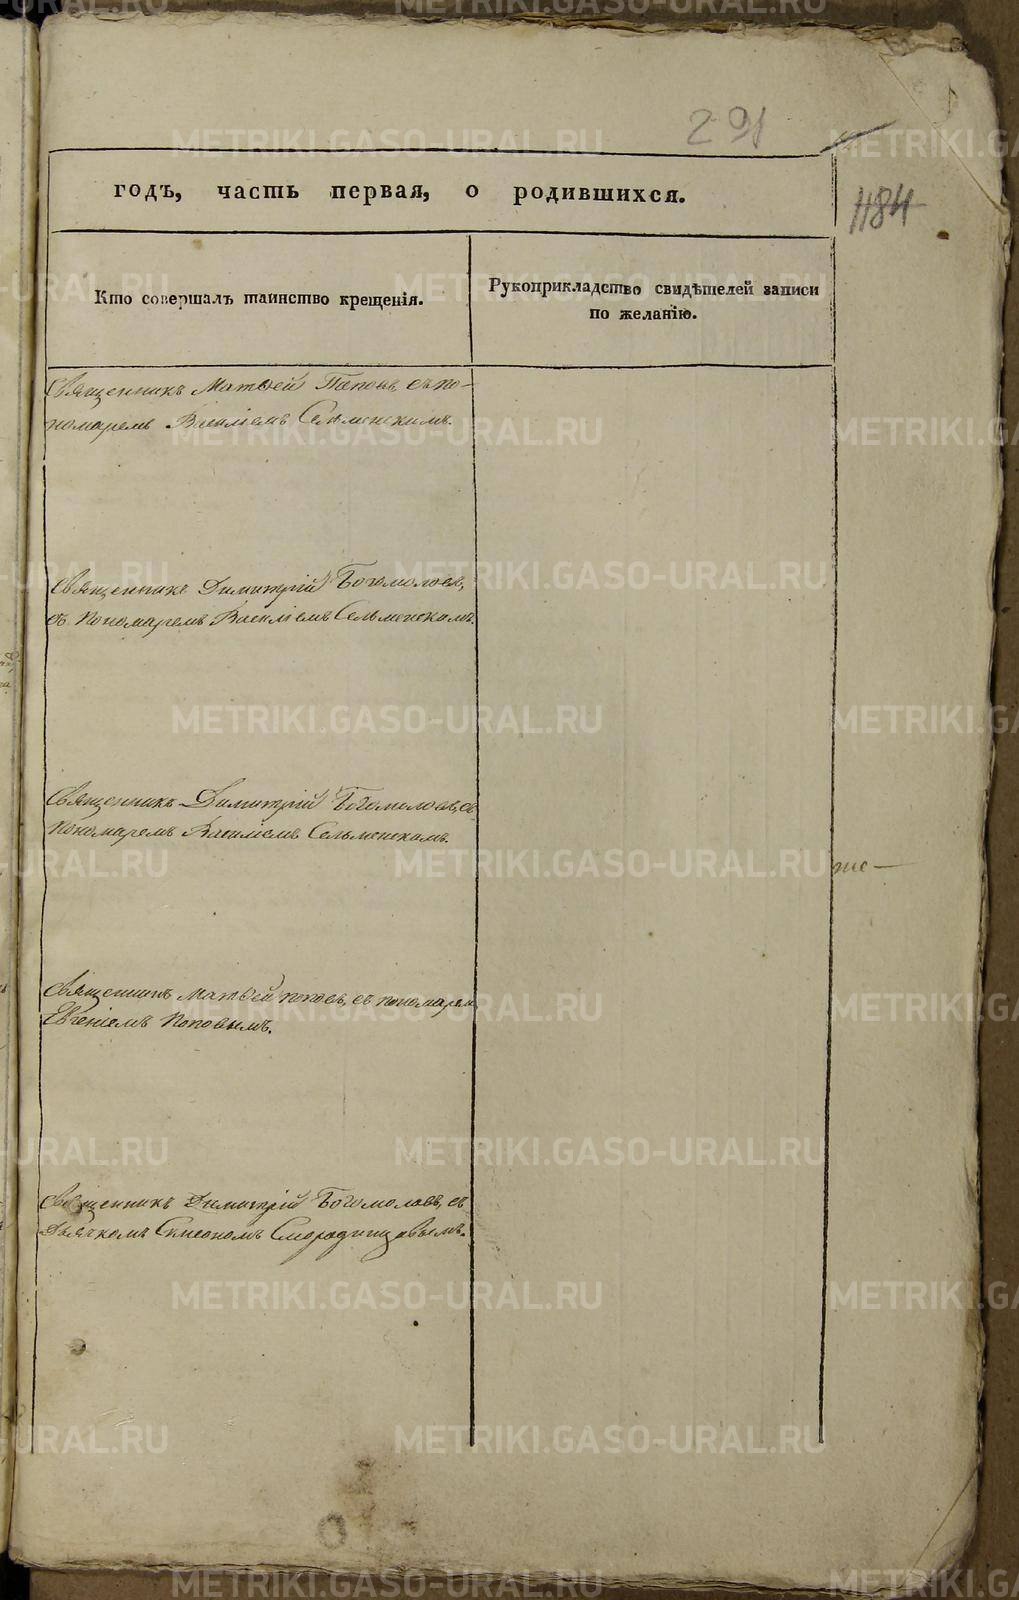 291
1184
годъ, часть первая, о родившихся.
Кто совершалъ таинство крещенія.
Рукоприкладство свидѣтелей записи
по желанію.
Священникъ Матвей Поповъ, съ по-
номаремъ Василіемъ Сельменскимъ.
Священникъ Димитрій Богомоловъ,
съ пономаремъ Василіемъ Сельменскимъ.
Священникъ Димитрій Богомоловъ, съ
пономаремъ Василіемъ Сельменскимъ.
Священникъ Матвей Поповъ, съ пономарем
Евгеніемъ Поповымъ.
Священникъ Димитрій Богомоловъ, съ
Дьячкомъ Симеономъ Смородинцовымъ.
METRIKI.GASO-URAL.RU